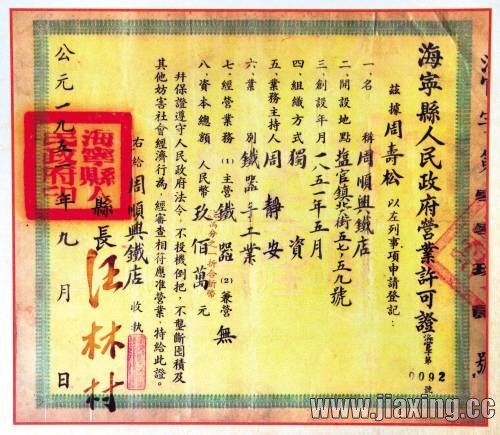 海寧縣人民政府營業許可證
第
0092
號
茲據周壽松以左列事項申請登記：
一、名稱 周順興鐵店
二、開設地點 鹽官鎮北街五七，五九號
三、創設年月 一八五二年五月
四、組織方式 獨資
五、業務主持人 周靜安
六、業別 鐵器手工業
七、經營業務 (1)主營 鐵器 (2)兼營 無
八、資本總額 人民幣 玖佰萬元
幷保證遵守人民政府法令，不投機倒把，不壟斷囤積及
其他妨害社會經濟行為，經審查相符應准營業，特給此證。
右給 周順興鐵店 收執
縣長 汪林村
公元一九五 年九月 日
海寧縣人民政府印
號
www.jiaxing.cc